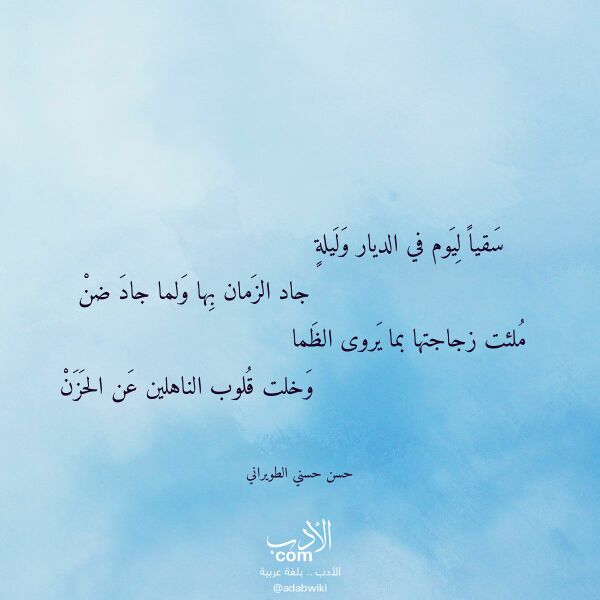 سَقياً لِيَوم في الديار وَلَيلةٍ
جاد الزَمان بِها وَلما جادَ ضنْ
مُلئت زجاجتها بما يَروى الظَما
وَخلت قُلوب الناهلين عَن الحَزَنْ
حسن حسني الطويراني
الأدب
com
الأدب .. بلغة عربية
@adabwiki